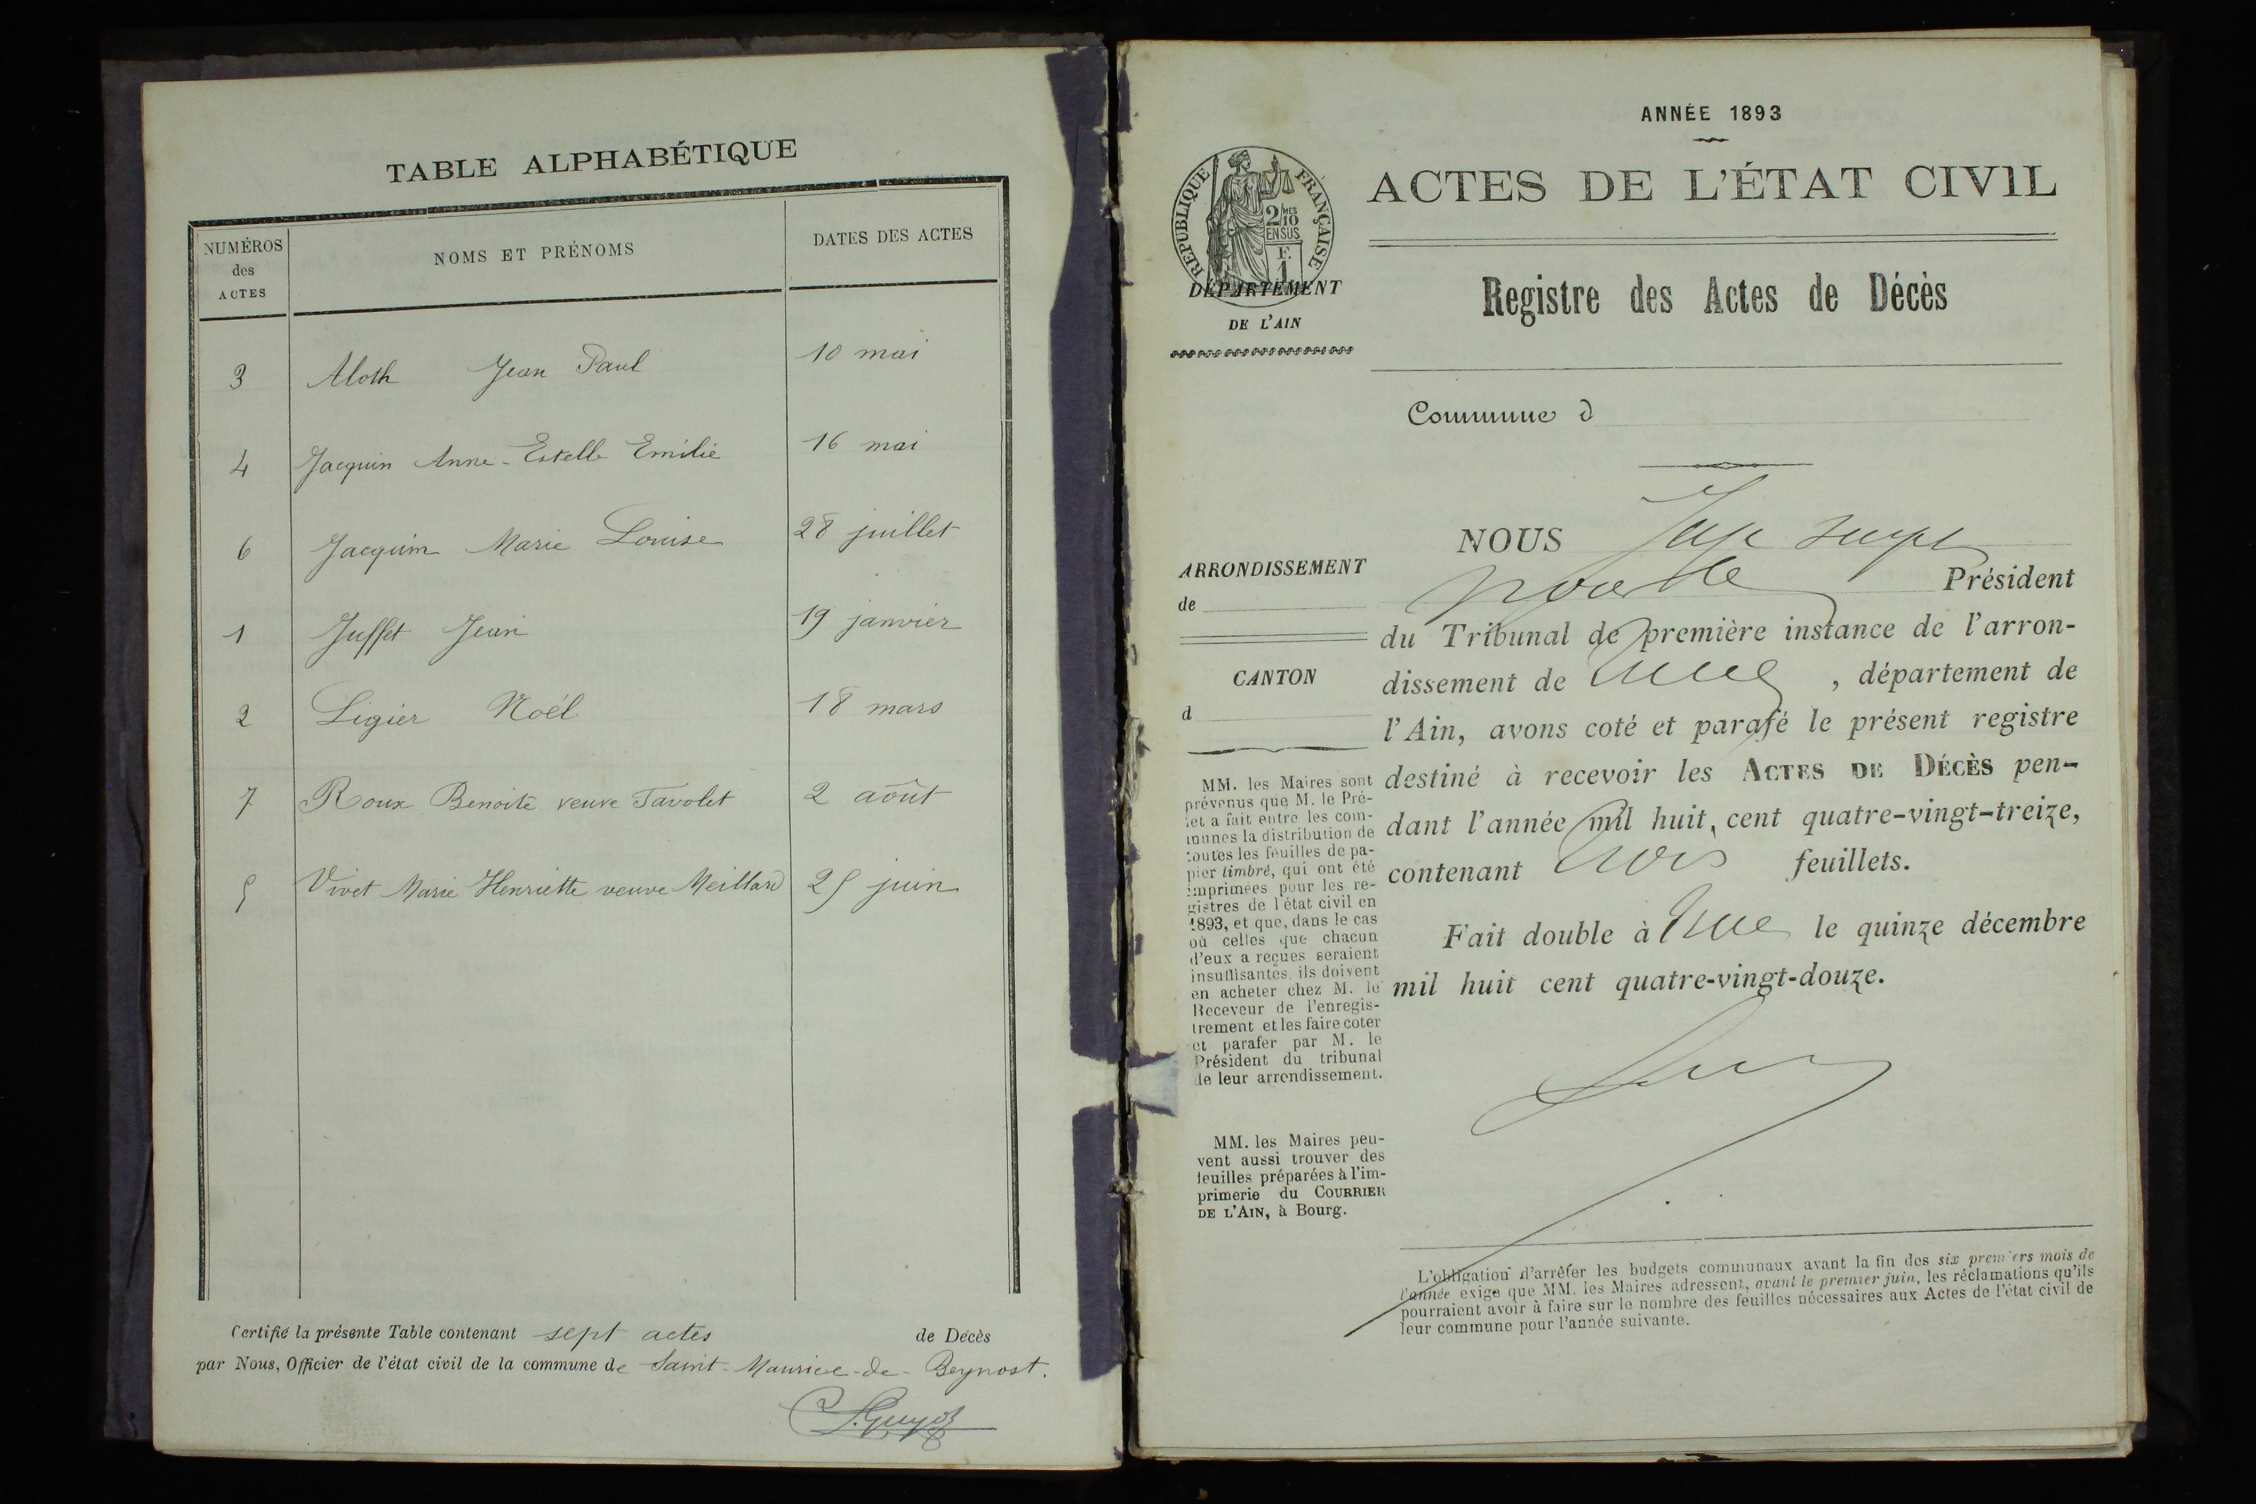 TABLE ALPHABÉTIQUE
NUMÉROS des ACTES NOMS ET PRÉNOMS DATES DES ACTES
3 Aloth Jean Paul 10 mai
4 Jacquin Anne-Estelle Emilie 16 mai
6 Jacquin Marie Louise 28 juillet
1 Juffet Jean 19 janvier
2 Ligier Noél 18 mars
7 Roux Benoite veuve Tavolet 2 août
5 Vivet Marie Henriette veuve Meilland 25 juin
Certifié la présente Table contenant sept actes de Décès
par Nous, Officier de l'état civil de la commune de Saint-Maurice-de-Beynost.
Guyot
ANNÉE 1893
ACTES DE L'ÉTAT CIVIL
RÉPUBLIQUE FRANÇAISE
2/10MES
EN SUS
F.
1
DÉPARTEMENT
DE L'AIN
Registre des Actes de Décès
Commune d
ARRONDISSEMENT
de
CANTON
d
MM. les Maires sont
prévenus que M. le Pré-
fet a fait entre les com-
munes la distribution de
toutes les feuilles de pa-
pier timbré, qui ont été
imprimées pour les re-
gistres de l'état civil en
1893, et que, dans le cas
où celles que chacun
d'eux a reçues seraient
insuffisantes, ils doivent
en acheter chez M. le
Receveur de l'enregis-
trement et les faire coter
et parafer par M. le
Président du tribunal
de leur arrondissement.
MM. les Maires peu-
vent aussi trouver des
feuilles préparées à l'im-
primerie du COURRIER
DE L'AIN, à Bourg.
NOUS Juge
Président
du Tribunal de première instance de l'arron-
dissement de , département de
l'Ain, avons coté et parafé le présent registre
destiné à recevoir les ACTES DE DÉCÈS pen-
dant l'année mil huit cent quatre-vingt-treize,
contenant trois feuillets.
Fait double à le quinze décembre
mil huit cent quatre-vingt-douze.
L'obligation d'arrêter les budgets communaux avant la fin des six premiers mois de
l'année exige que MM. les Maires adressent, avant le premier juin, les réclamations qu'ils
pourraient avoir à faire sur le nombre des feuilles nécessaires aux Actes de l'état civil de
leur commune pour l'année suivante.